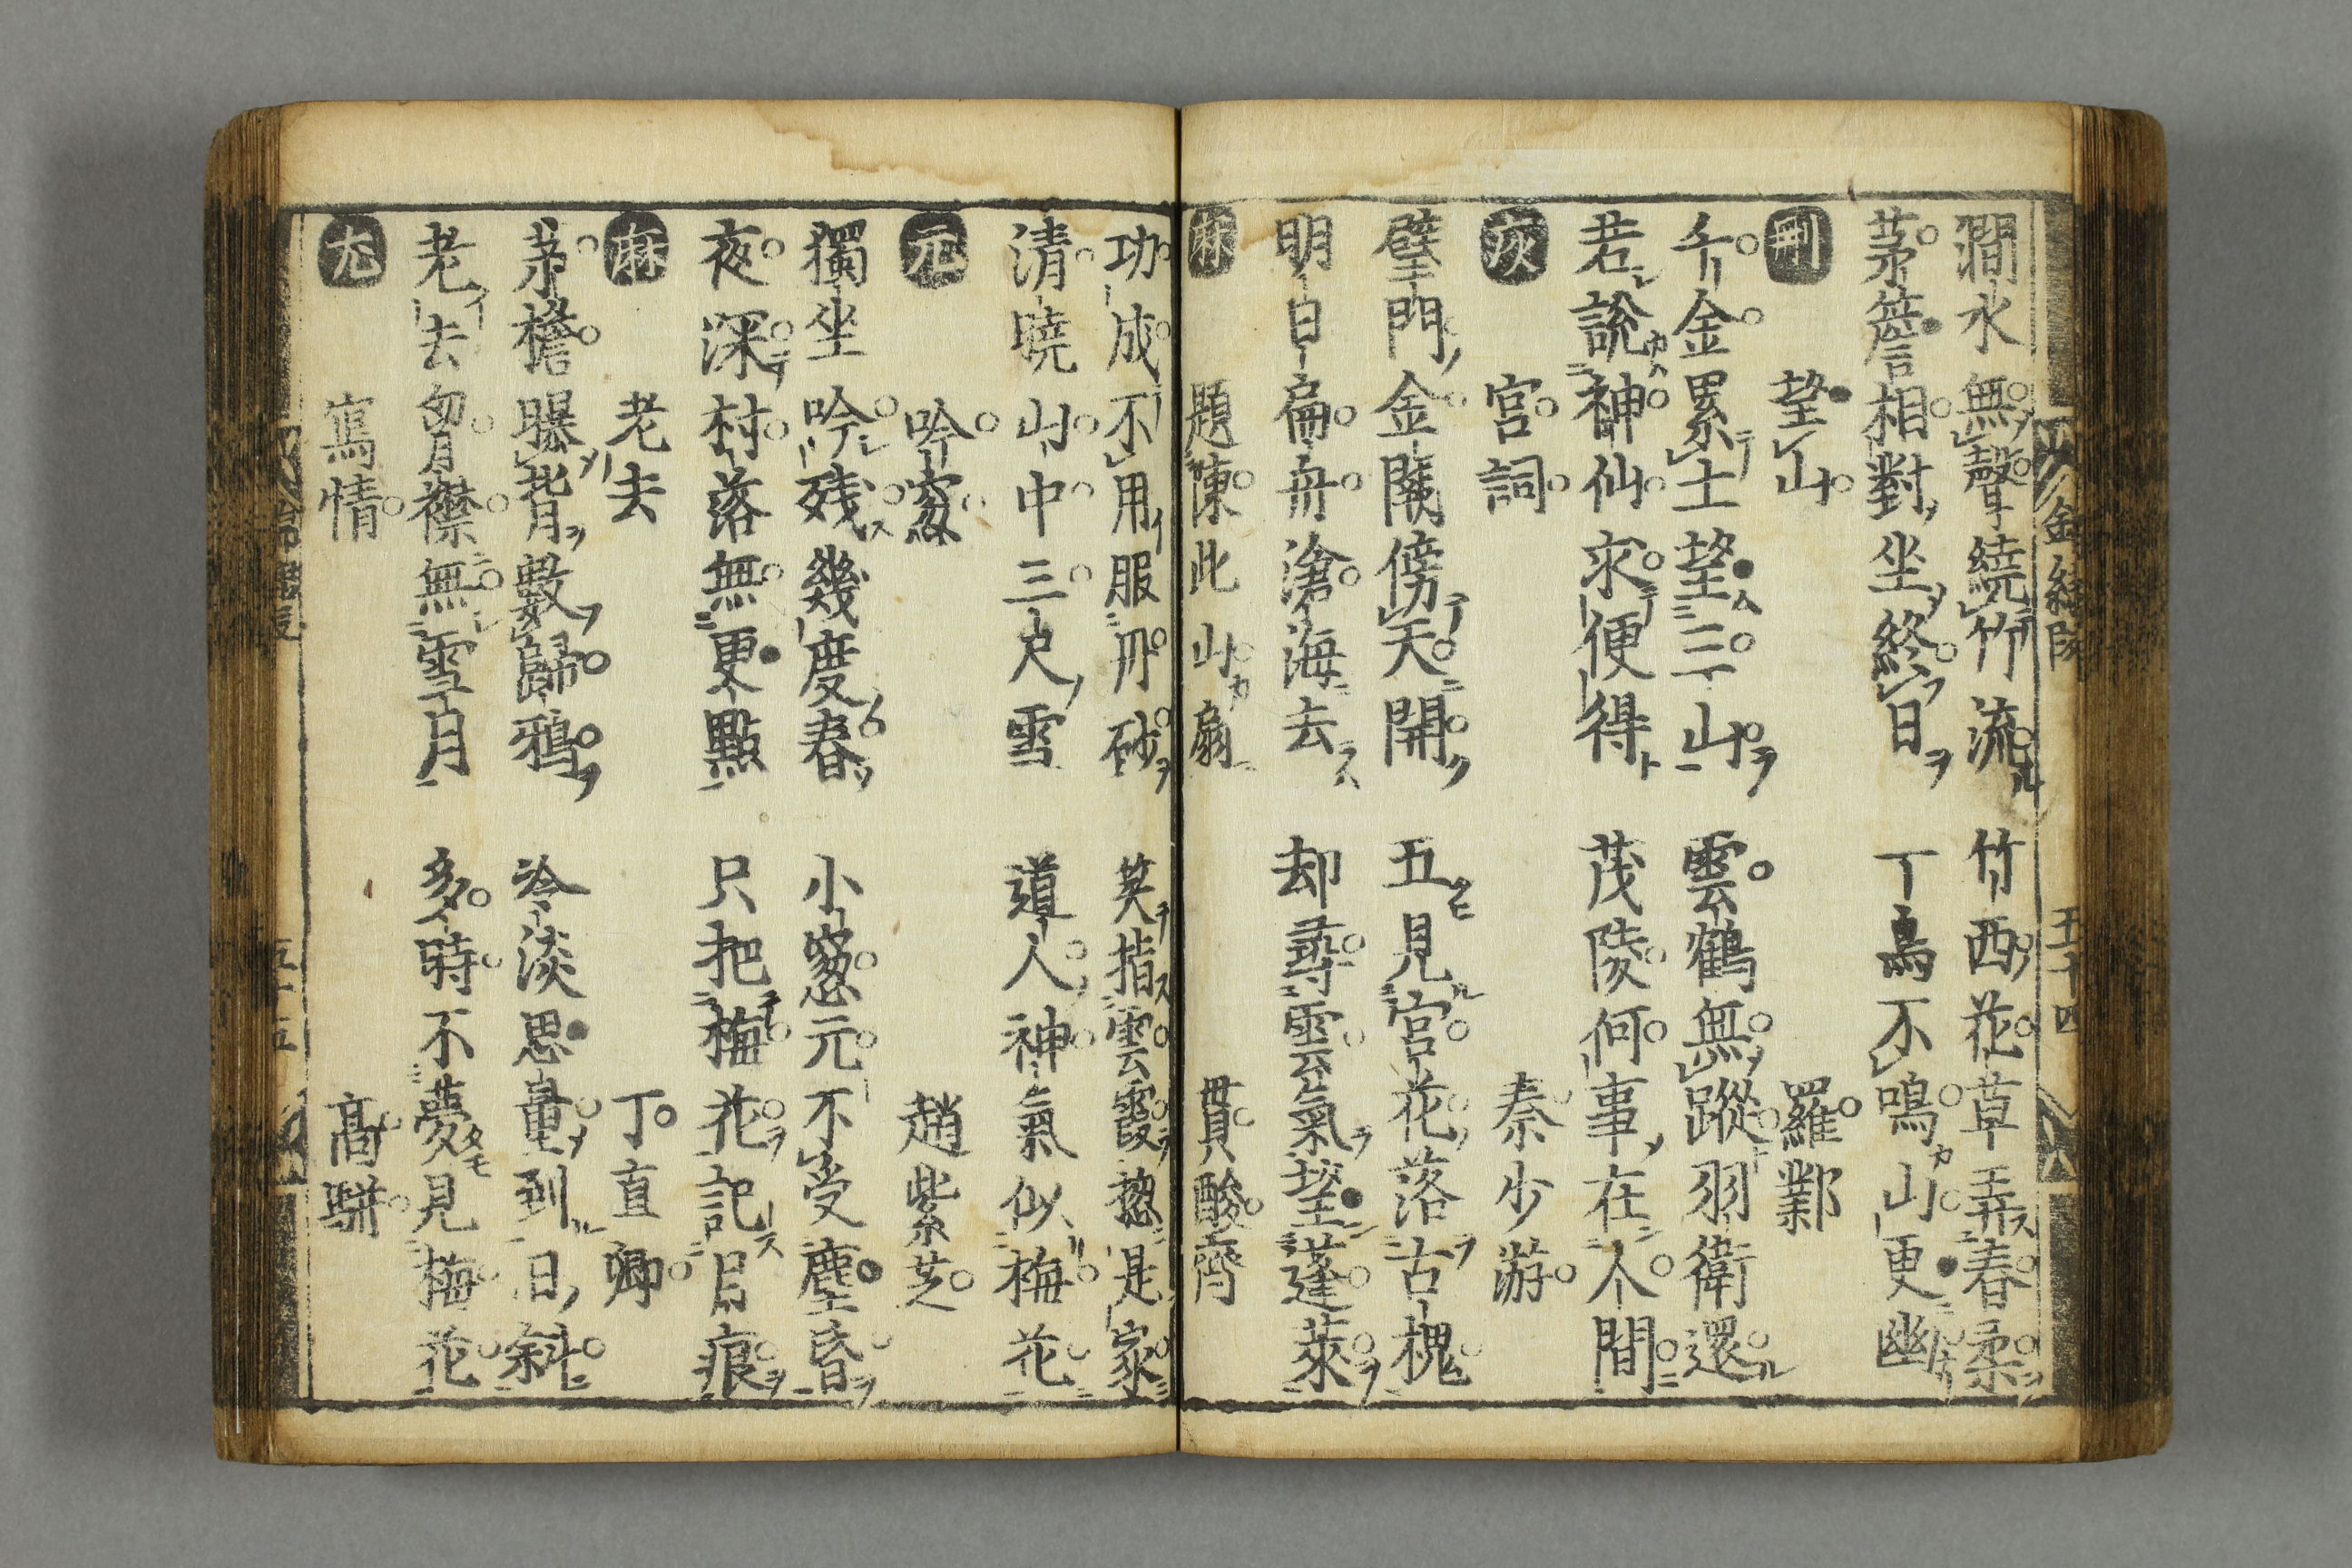 澗水無聲繞竹流　竹西花草弄春柔
茅簷相對坐終日　丁鳥不鳴山更幽
刪　望山　羅鄴
千金累土望三山　雲鶴無蹤羽衛還
若說神仙求便得　茂陵何事在人間
灰　宮詞　秦少游
璧門金闕傍天開　五見宮花落古槐
明日扁舟滄海去　却尋雲氣望蓬萊
麻　題陳此山扇　貫酸齊
功成不用服丹砂　笑指雲霞揔是家
清曉山中三尺雪　道人神氣似梅花
元　吟窓　趙紫芝
獨坐吟残幾度春　小窓元不受塵昏
夜深村落無更點　只把梅花記月痕
麻　老去　丁直卿
茅檐曝背數歸鴉　冷淡思量到日斜
老去胷襟無雪月　多時不夢見梅花
尤　寫情　高駢
五十四